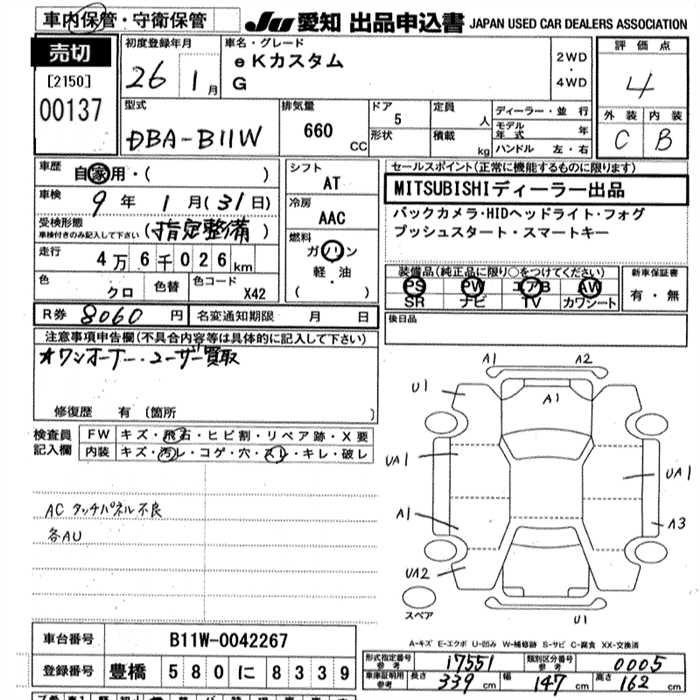 車内保管・守衛保管
JU 愛知 出品申込書 JAPAN USED CAR DEALERS ASSOCIATION
売切
[2150]
00137
初度登録年月
26 1月
車名・グレード
eKカスタム
G
2WD
・
4WD
評価点
4
外装 内装
C B
型式
DBA-B11W
排気量
660 CC
ドア 5
形状
定員 人
積載 kg
ディーラー・並行
モデル年式 年
ハンドル 左・右
車歴
自家用・( )
車検
9年1月(31日)
受検形態
車検付きのみ記入して下さい
(指定整備)
走行
4万6千026km
色 クロ 色替 色コード X42
シフト
AT
冷房
AAC
燃料
ガソリン
軽・油
( )
セールスポイント(正常に機能するものに限ります)
MITSUBISHIディーラー出品
バックカメラ・HIDヘッドライト・フォグ
プッシュスタート・スマートキー
装備品(純正品に限り○をつけてください)
PS PW エアB AW
SR ナビ TV カワシート
新車保証書
有・無
R券 8060円 名変通知期限 月 日
後日品
注意事項申告欄(不具合内容等は具体的に記入して下さい)
オワンオーナー・ユーザー買取
修復歴 有 (箇所 )
検査員
記入欄
FW キズ・飛石・ヒビ割・リペア跡・X要
内装 キズ・汚レ・コゲ・穴・スレ・キレ・破レ
AC タッチパネル不良
各AU
A1 A2
U1 A1
UA1 UA1
A1 A3
UA2
スペア
U1
A-キズ E-エクボ U-凹み W-補修跡 S-サビ C-腐食 XX-交換済
車台番号 B11W-0042267
登録番号 豊橋 580に8339
形式指定番号 参考 17551 類別区分番号 参考 0005
車庫証明用 参考 長さ 339cm 幅 147cm 高さ 162cm